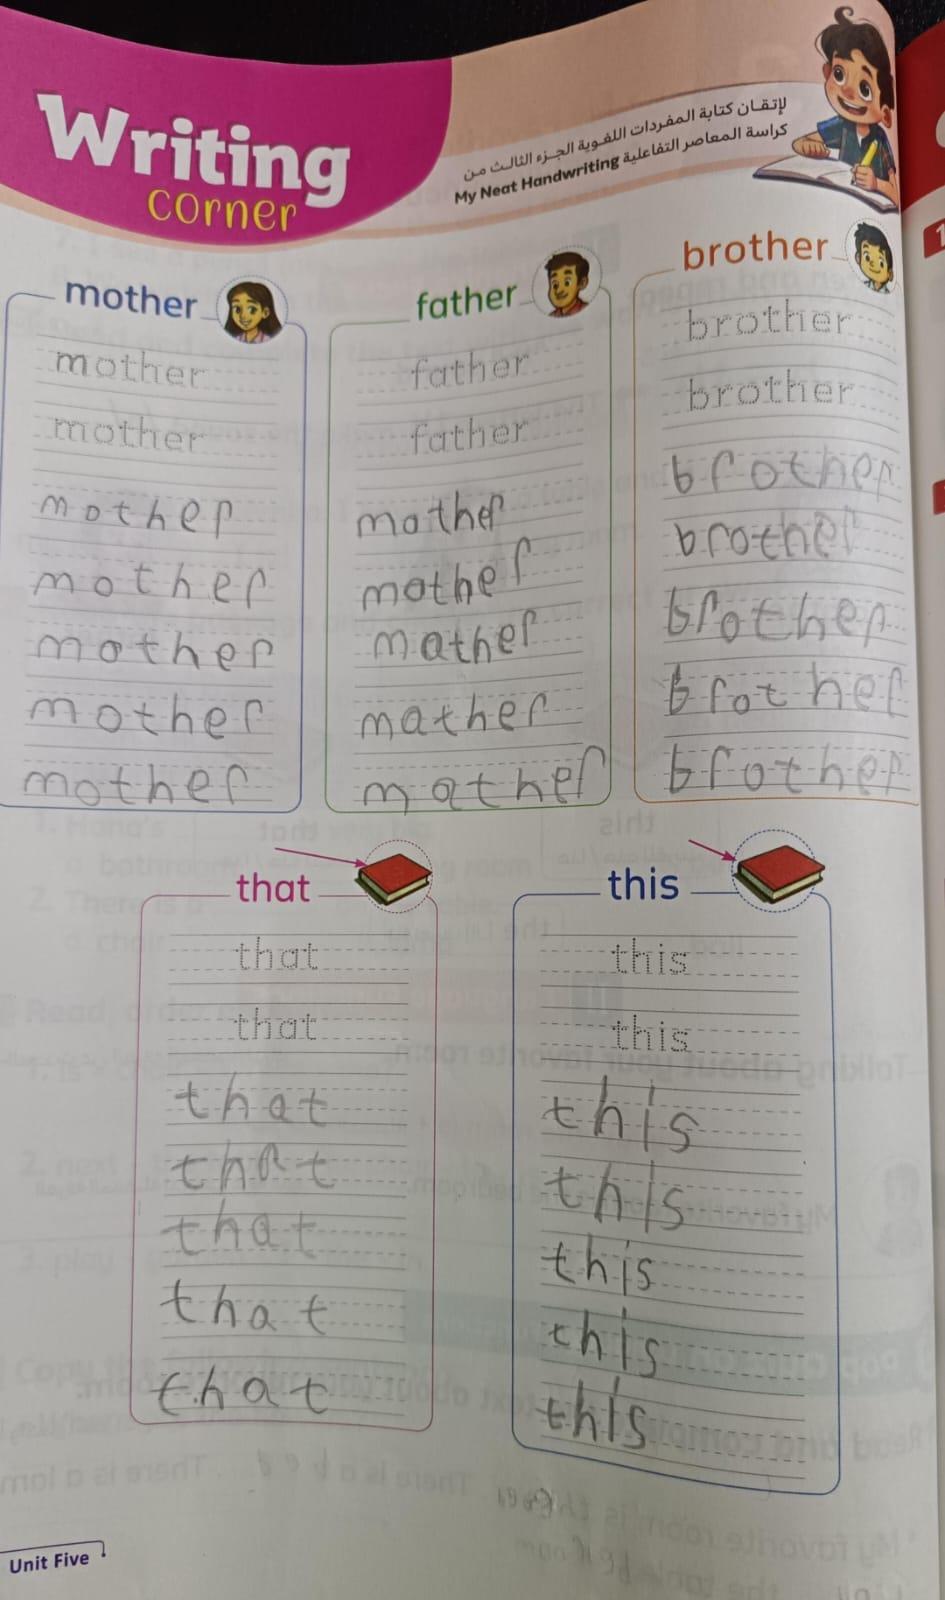 Writing
corner
لإتقان كتابة المفردات اللغوية الجزء الثالث من
كراسة المعاصر التفاعلية My Neat Handwriting
mother
mother
mother
mother
mother
mother
mother
mother
father
father
father
mather
mather
mather
mather
mather
brother
brother
brother
brother
brother
brother
brother
brother
that
that
that
that
that
that
that
that
this
this
this
this
this
this
this
this
Unit Five